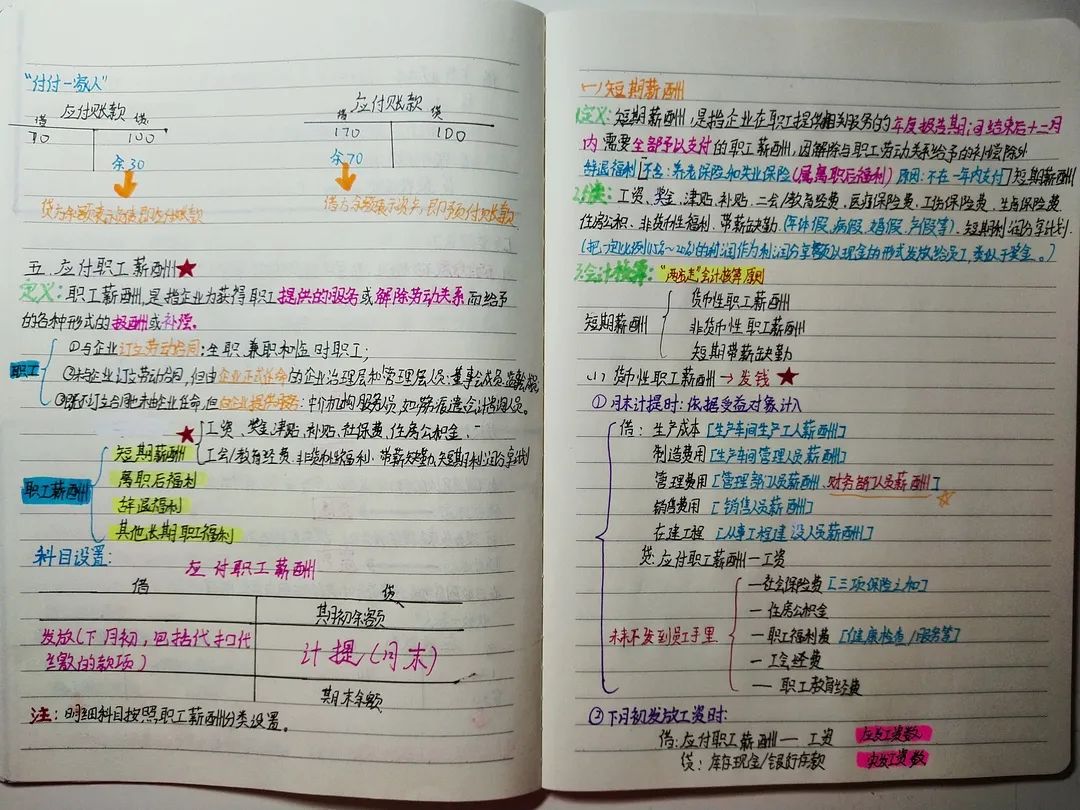 “付付一家人”
应付账款
借 贷
70 100
余30
贷方余额表示负债,即应付账款
应付账款
借 贷
170 100
余70
借方余额表示资产,即预付账款
五、应付职工薪酬★
定义:职工薪酬,是指企业为获得职工提供的服务或解除劳动关系而给予
的各种形式的报酬或补偿。
职工
①与企业订立劳动合同:全职、兼职和临时职工;
②未与企业订立劳动合同,但由企业正式任命的企业治理层和管理层人员:董事会成员、监事会成员
③既不订立合同也未由企业任命,但向企业提供服务:中介机构服务人员,如劳务派遣会计咨询人员。
职工薪酬
★
短期薪酬
工资、奖金、津贴、补贴、社保费、住房公积金、
工会/教育经费、非货币性福利、带薪缺勤、短期利润分享计划
离职后福利
辞退福利
其他长期职工福利
科目设置:
应付职工薪酬
借 贷
期初余额
发放(下月初,包括代扣代
缴的款项)
计提(月末)
期末余额
注:明细科目按照职工薪酬分类设置。
(一)短期薪酬
1.定义:短期薪酬,是指企业在职工提供相关服务的年度报告期间结束后十二个月
内需要全部予以支付的职工薪酬,因解除与职工劳动关系给予的补偿除外
辞退福利[不含:养老保险和失业保险(属离职后福利)原因:不在一年内支付]短期薪酬
2.分类:工资、奖金、津贴、补贴、工会/教育经费、医疗保险费、工伤保险费、生育保险费
住房公积、非货币性福利、带薪缺勤(年休假、病假、婚假、产假等)、短期利润分享计划.
(把一定比例(15%~20%)的利润作为利润分享额以现金的形式发放给员工,类似于奖金。)
3.会计核算:“两步走”会计核算原则
短期薪酬
货币性职工薪酬
非货币性职工薪酬
短期带薪缺勤
(1)货币性职工薪酬→发钱★
①月末计提时:依据受益对象计入
借:生产成本[生产车间生产工人薪酬]
制造费用[生产车间管理人员薪酬]
管理费用[管理部门人员薪酬、财务部门人员薪酬]
销售费用[销售人员薪酬]
在建工程[从事工程建设人员薪酬]
贷:应付职工薪酬—工资
—社会保险费[三项保险之和]
—住房公积金
未来不发到员工手里
—职工福利费[健康检查/服务等]
—工会经费
—职工教育经费
②下月初发放工资时:
借:应付职工薪酬—工资 应发工资数
贷:库存现金/银行存款 实发工资数